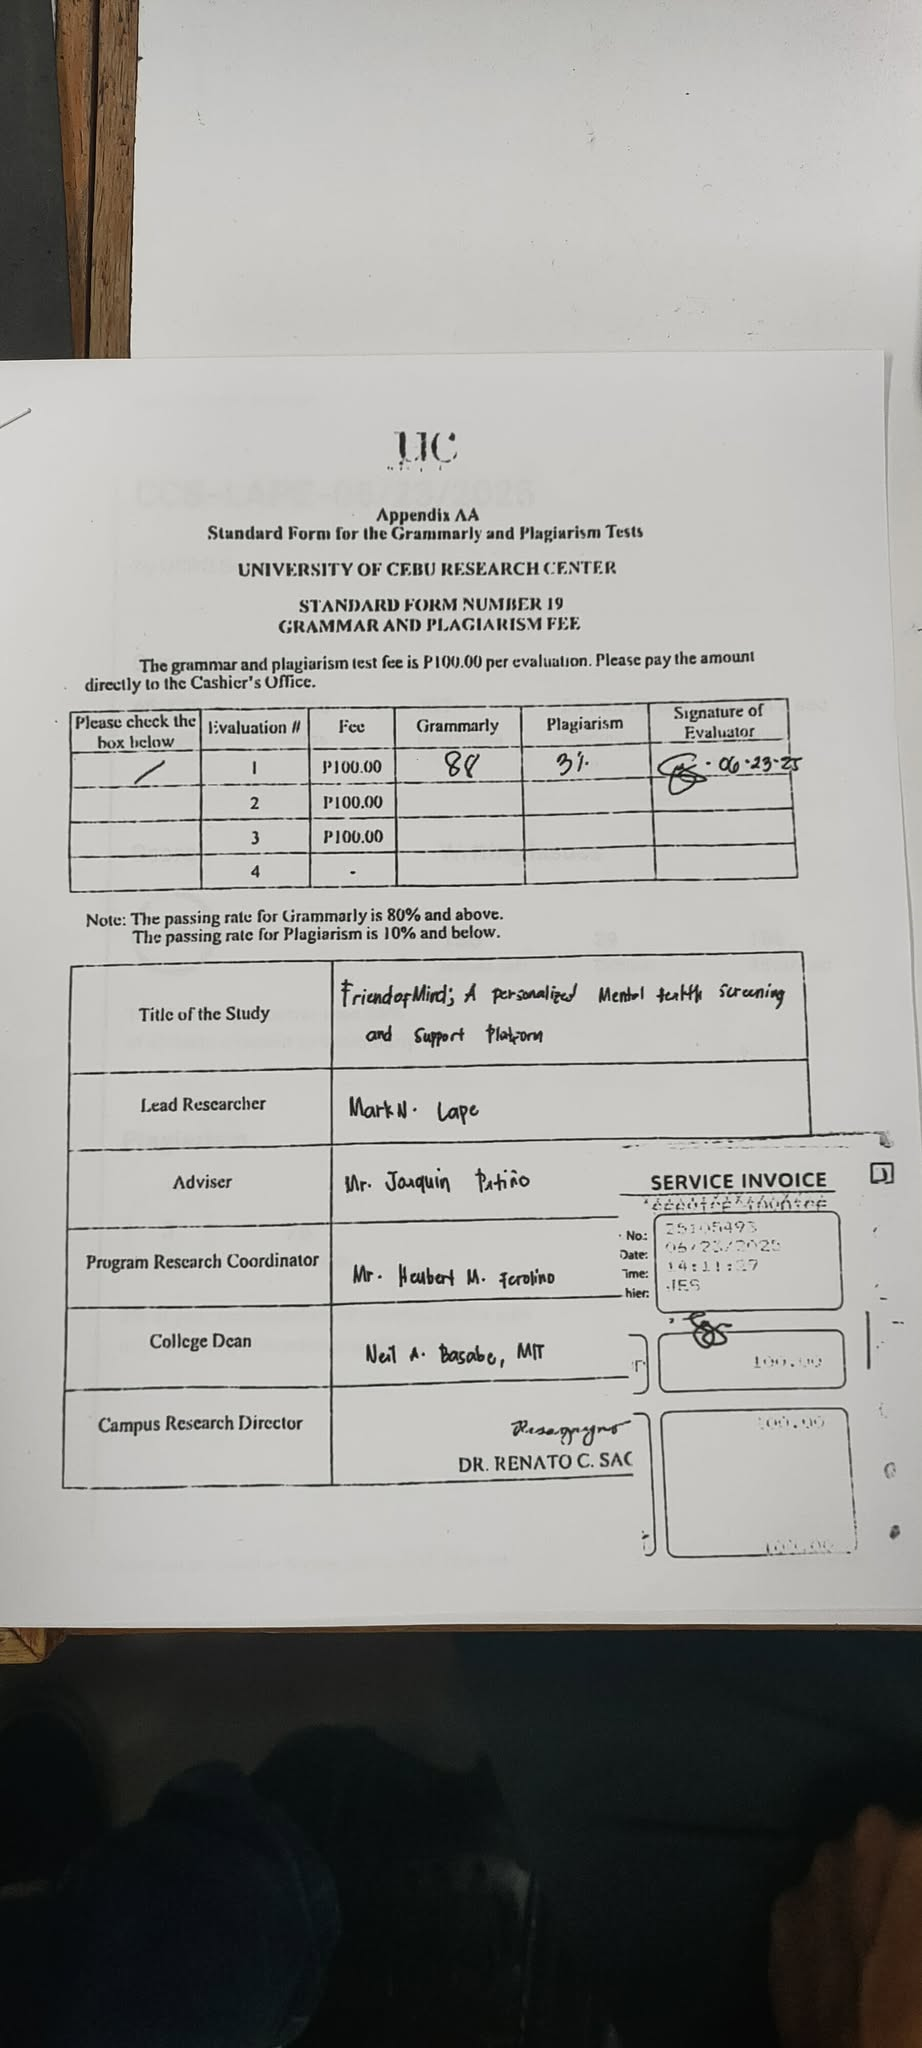 UC
Appendix AA
Standard Form for the Grammarly and Plagiarism Tests
UNIVERSITY OF CEBU RESEARCH CENTER
STANDARD FORM NUMBER 19
GRAMMAR AND PLAGIARISM FEE
The grammar and plagiarism test fee is P100.00 per evaluation. Please pay the amount
directly to the Cashier's Office.
Please check the box below Evaluation # Fee Grammarly Plagiarism Signature of Evaluator
/ 1 P100.00 88 3% 06-23-25
2 P100.00
3 P100.00
4 -
Note: The passing rate for Grammarly is 80% and above.
The passing rate for Plagiarism is 10% and below.
Title of the Study FriendofMind; A personalized Mental Health Screening
and Support Platform
Lead Researcher Mark N. Lape
Adviser Mr. Joaquin Patiño
SERVICE INVOICE
No: 25105493
Date: 06/23/2025
ime: 14:11:37
hier: JES
Program Research Coordinator Mr. Heubert M. Ferolino
College Dean Neil A. Basabe, MIT
100.00
Campus Research Director
DR. RENATO C. SAG
100.00
100.00